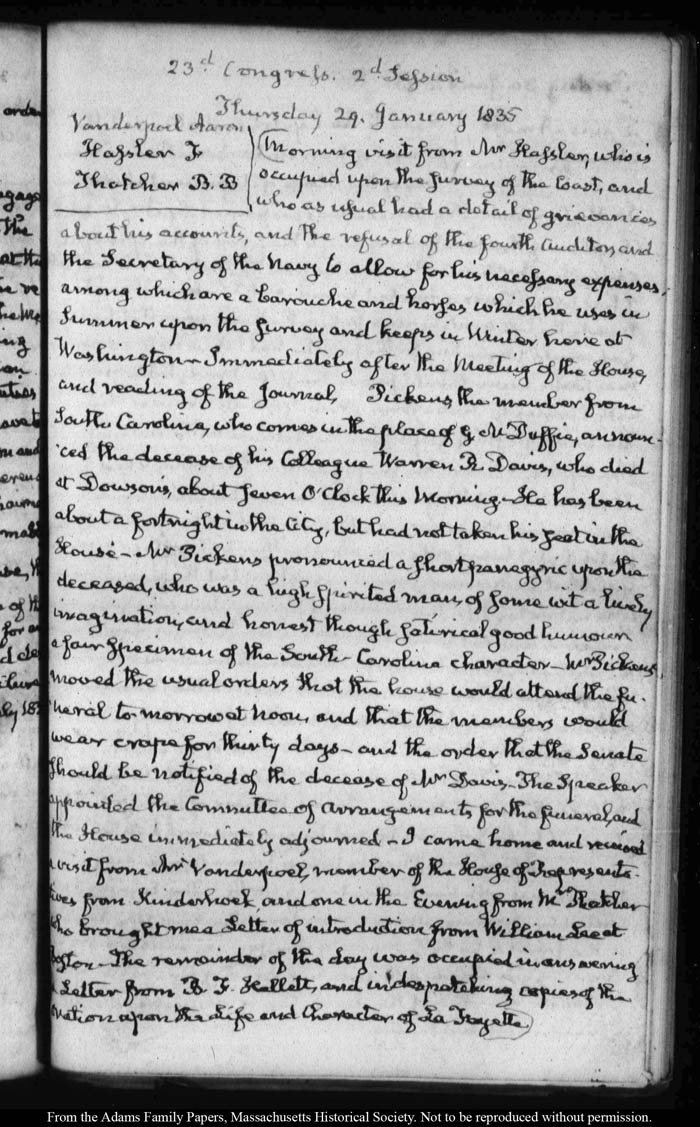 23d Congress. 2d Session
Thursday 29. January 1835
Vanderpoel Aaron
Hassler F
Thatcher B. B
Morning visit from Mr Hassler, who is
occupied upon the survey of the Coast, and
who as usual had a detail of grievances
about his accounts, and the refusal of the fourth Auditor and
the Secretary of the Navy to allow for his necessary expenses,
among which are a barouche and horses which he uses in
Summer upon the survey and keeps in Winter here at
Washington. Immediately after the Meeting of the House,
and reading of the Journal, Pickens, the member from
South Carolina, who comes in the place of G. McDuffie, announ-
ced the decease of his Colleague Warren R. Davis, who died
at Dowson's, about seven O'Clock this Morning. He has been
about a fortnight in the City, but had not taken his seat in the
House - Mr Pickens pronounced a short panegyric upon the
deceased, who was a high spirited man, of some wit a lively
imagination, and honest though satirical good humour
a fair specimen of the South-Carolina character - Mr Pickens
moved the usual orders that the house would attend the fu-
neral to-morrow at Noon, and that the members would
wear crape for thirty days - and the order that the Senate
should be notified of the decease of Mr Davis - The Speaker
appointed the Committee of arrangements for the funeral, and
the House immediately adjourned - I came home and received
a visit from Mr Vanderpoel, member of the House of Representa-
tives from Kinderhook, and one in the Evening from Mr Thatcher
who brought me a Letter of introduction from William Lee at
Boston - The remainder of the day was occupied in answering
a Letter from B. F. Hallett, and in despatching copies of the
Oration upon the Life and Character of La Fayette.
From the Adams Family Papers, Massachusetts Historical Society. Not to be reproduced without permission.